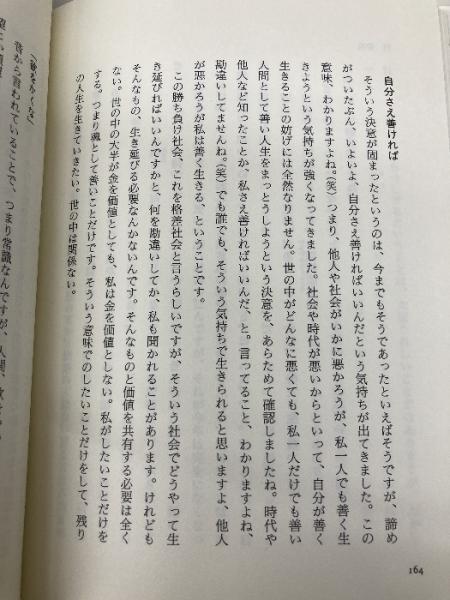 自分さえ善ければ
そういう決意が固まったというのは、今までもそうであったといえばそうですが、諦め
がついたぶん、いよいよ、自分さえ善ければいいんだという気持ちが出てきました。この
意味、わかりますよね。(笑) つまり、他人や社会がいかに悪かろうが、私一人でも善く生
きようという気持ちが強くなってきました。社会や時代が悪いからといって、自分が善く
生きることの妨げには全然なりません。世の中がどんなに悪くても、私一人だけでも善い
人間として善い人生をまっとうしようという決意を、あらためて確認しましたね。時代や
他人など知ったことか、私さえ善ければいいんだ、と。言ってること、わかりますよね、
勘違いしてませんね。(笑) でも誰でも、そういう気持ちで生きられると思いますよ、他人
が悪かろうが私は善く生きる、ということです。
この勝ち負け社会、これを格差社会と言うらしいですが、そういう社会でどうやって生
き延びればいいんですかと、何を勘違いしてか、私も聞かれることがあります。けれども
そんなもの、生き延びる必要なんかないんです。そんなものと価値を共有する必要は全く
ない。世の中の大半が金を価値としても、私は金を価値としない。私がしたいことだけを
する。つまり魂として善いことだけです。そういう意味でのしたいことだけをして、残り
の人生を生きていきたい。世の中は関係ない。
昔から言われていることで、つまり常識なんですが、人間、
164